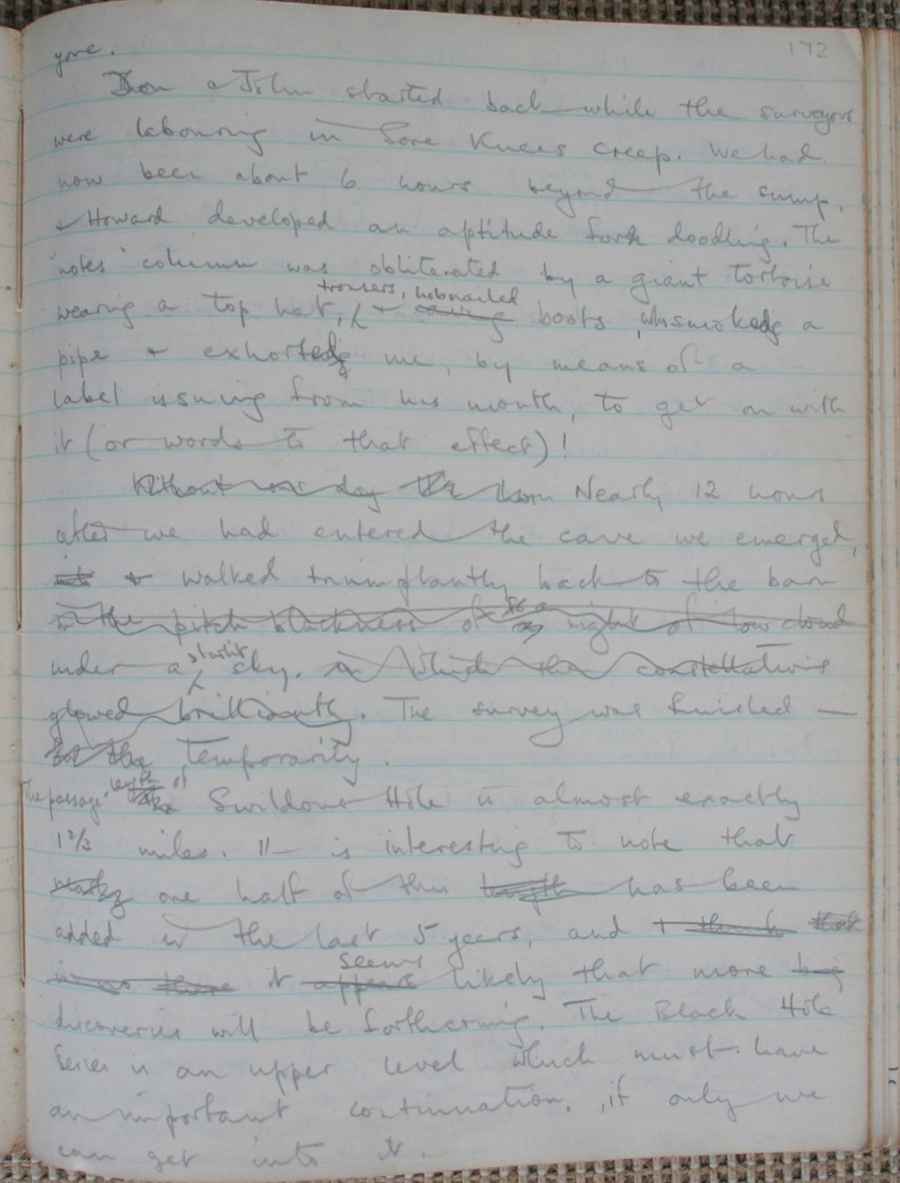 172
yore.
Don & John started back while the surveyors
were labouring in Sore Knees Creep. We had
now been about 6 hours beyond the sump,
& Howard developed an aptitude for doodling. The
'notes' column was obliterated by a giant tortoise
trousers, hobnailed
wearing a top hat, & boots, who smoked a
pipe & exhorted me, by means of a
label issuing from his mouth, to get on with
it (or words to that effect)!
Without day Nearly 12 hours
after we had entered the cave we emerged,
& walked triumphantly back to the barn
in the pitch blackness of a night of low cloud
starlit
under a sky. in which the constellations
glowed brilliantly. The survey was finished —
for the temporarily.
The passage length of Swildons Hole is almost exactly
1⅔ miles. It is interesting to note that
nearly one half of this length has been
added in the last 5 years, and I think that
seems
it appears likely that more big
discoveries will be forthcoming. The Black Hole
Series is an upper level which must have
an important continuation, if only we
can get into it.